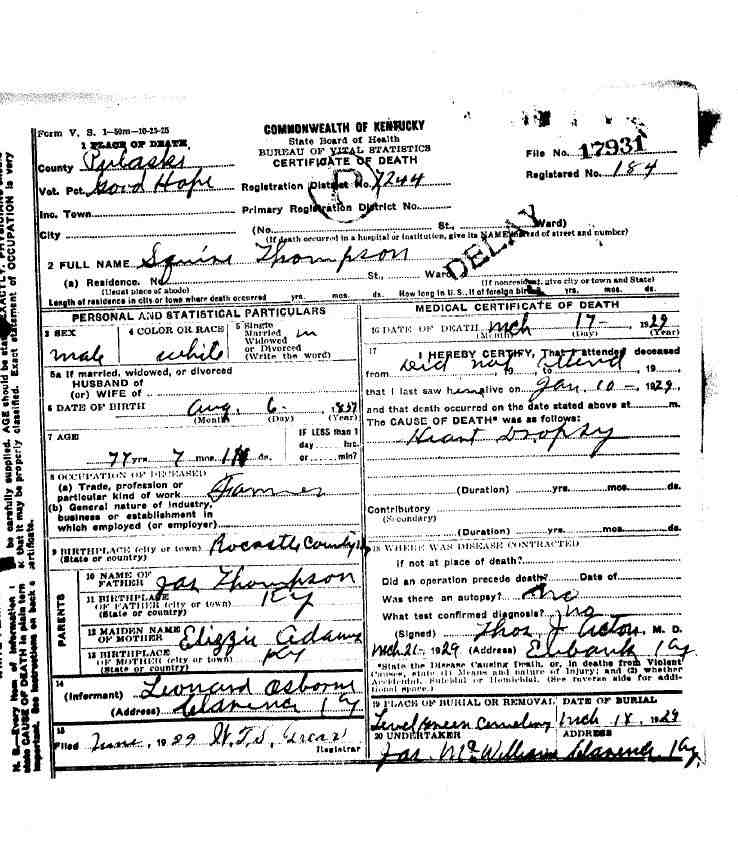 Form V. S. 1—50m—10-23-25
COMMONWEALTH OF KENTUCKY
State Board of Health
BUREAU OF VITAL STATISTICS
CERTIFICATE OF DEATH
File No. 17931
Registered No. 184
1 PLACE OF DEATH
County Pulaski
Vot. Pct. Good Hope
Registration District No. 7244
Inc. Town
Primary Registration District No.
City
(No. St., Ward)
(If death occurred in a hospital or institution, give its NAME instead of street and number)
DELAY
2 FULL NAME Squire Thompson
(a) Residence. No. St., Ward
(Usual place of abode)
(If nonresident, give city or town and State)
Length of residence in city or town where death occurred yrs. mos. ds. How long in U. S., if of foreign birth? yrs. mos. ds.
PERSONAL AND STATISTICAL PARTICULARS
3 SEX
male
4 COLOR OR RACE
white
5 Single
Married m
Widowed
or Divorced
(Write the word)
5a If married, widowed, or divorced
HUSBAND of
(or) WIFE of
6 DATE OF BIRTH Aug. 6 -
(Month) (Day) (Year)
7 AGE
77 yrs. 7 mos. ds.
IF LESS than 1
day hrs.
or min?
8 OCCUPATION OF DECEASED
(a) Trade, profession or
particular kind of work Farmer
(b) General nature of industry,
business or establishment in
which employed (or employer)
9 BIRTHPLACE (city or town) Rocastle County
(State or country)
PARENTS
10 NAME OF
FATHER Jas Thompson
11 BIRTHPLACE
OF FATHER (city or town) Ky
(State or country)
12 MAIDEN NAME
OF MOTHER Elizzie Adams
13 BIRTHPLACE
OF MOTHER (city or town) Ky
(State or country)
14
(Informant) Leonard Osborne
(Address) Clarence Ky
15
Filed June, 1929
Registrar
MEDICAL CERTIFICATE OF DEATH
16 DATE OF DEATH Mch 17 - 1929
(Month) (Day) (Year)
17 I HEREBY CERTIFY, That I attended deceased
from Did not attend, 19 to , 19
that I last saw him alive on Jan. 10 -, 1929,
and that death occurred on the date stated above at m.
The CAUSE OF DEATH* was as follows:
Heart Dropsy
(Duration) yrs. mos. ds.
Contributory
(Secondary)
(Duration) yrs. mos. ds.
18 WHERE WAS DISEASE CONTRACTED
if not at place of death?
Did an operation precede death? Date of
Was there an autopsy? no
What test confirmed diagnosis? no
(Signed) Thos. J Acton M. D.
Mch 21 - 1929 (Address) Eubank Ky
*State the Disease Causing Death, or, in deaths from Violent
Causes, state (1) Means and nature of Injury; and (2) whether
Accidental, Suicidal or Homicidal. (See reverse side for addi-
tional space.)
19 PLACE OF BURIAL OR REMOVAL DATE OF BURIAL
Level Green Cemetery Mch 18, 1929
20 UNDERTAKER ADDRESS
Jas McWilliams Clarence Ky